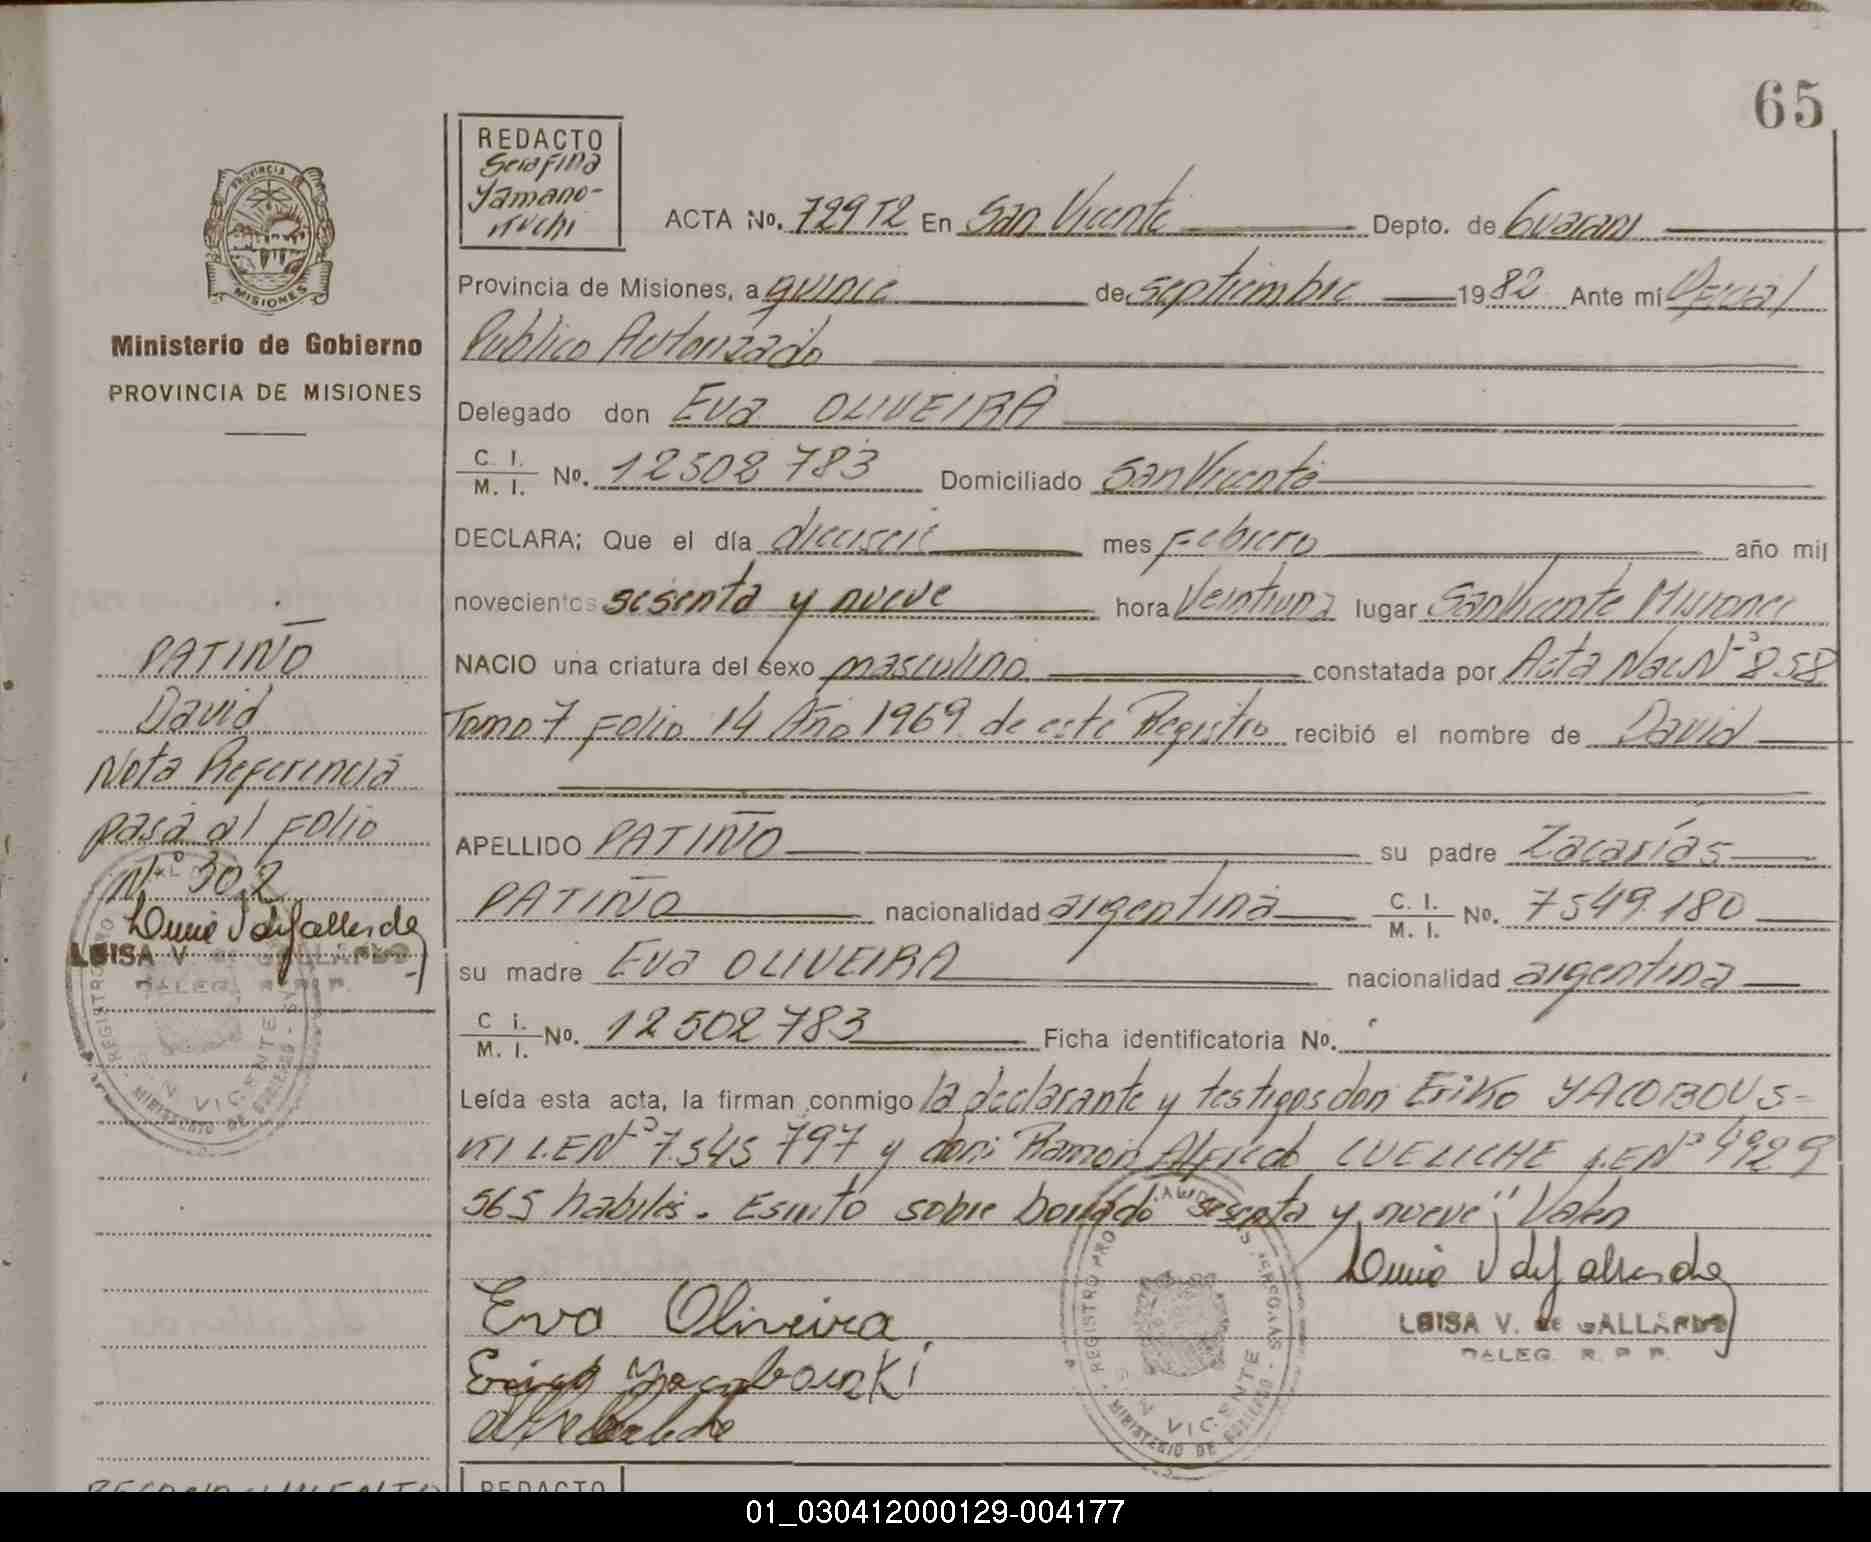 65
REDACTO
Serafina
Yamano-
ACTA No. 729 T2 En San Vicente Depto. de Guarani
Provincia de Misiones, a quince de septiembre 1982 Ante mi Oficial
Publico Autorizado
Ministerio de Gobierno
PROVINCIA DE MISIONES
Delegado don Eva OLIVEIRA
C. I. / M. I. No. 12502783 Domiciliado San Vicente
DECLARA; Que el día dieciseis mes Febrero año mil
novecientos sesenta y nueve hora Veintiuna lugar San Vicente Misiones
NACIO una criatura del sexo masculino constatada por Acta Nac Nº 858
Tomo 7 Folio 14 Año 1969 de este Registro recibió el nombre de David
APELLIDO PATIÑO su padre Zacarías
PATIÑO nacionalidad argentina C. I. / M. I. No. 7549.180
su madre Eva OLIVEIRA nacionalidad argentina
C i. / M. I. No. 12502783 Ficha identificatoria No.
Leída esta acta, la firman conmigo la declarante y testigos don Eriko YACOBOUS-
KI L.E Nº 7545797 y don: Ramon Alfredo L.E Nº 4929
565 habiles. Escrito sobre borrado "sesenta y nueve" Valen
Eva Oliveira
LUISA V. de GALLARDO
DELEG. R. P. P.
PATIÑO
David
Nota Referencia
pasa al Folio
Nº 302
LUISA V. de GALLARDO
DELEG. R. P. P.
REGISTRO PROVINCIAL DE LAS PERSONAS
SAN VICENTE
MINISTERIO DE GOBIERNO
RECONOCIMIENTO
REDACTO
01_030412000129-004177